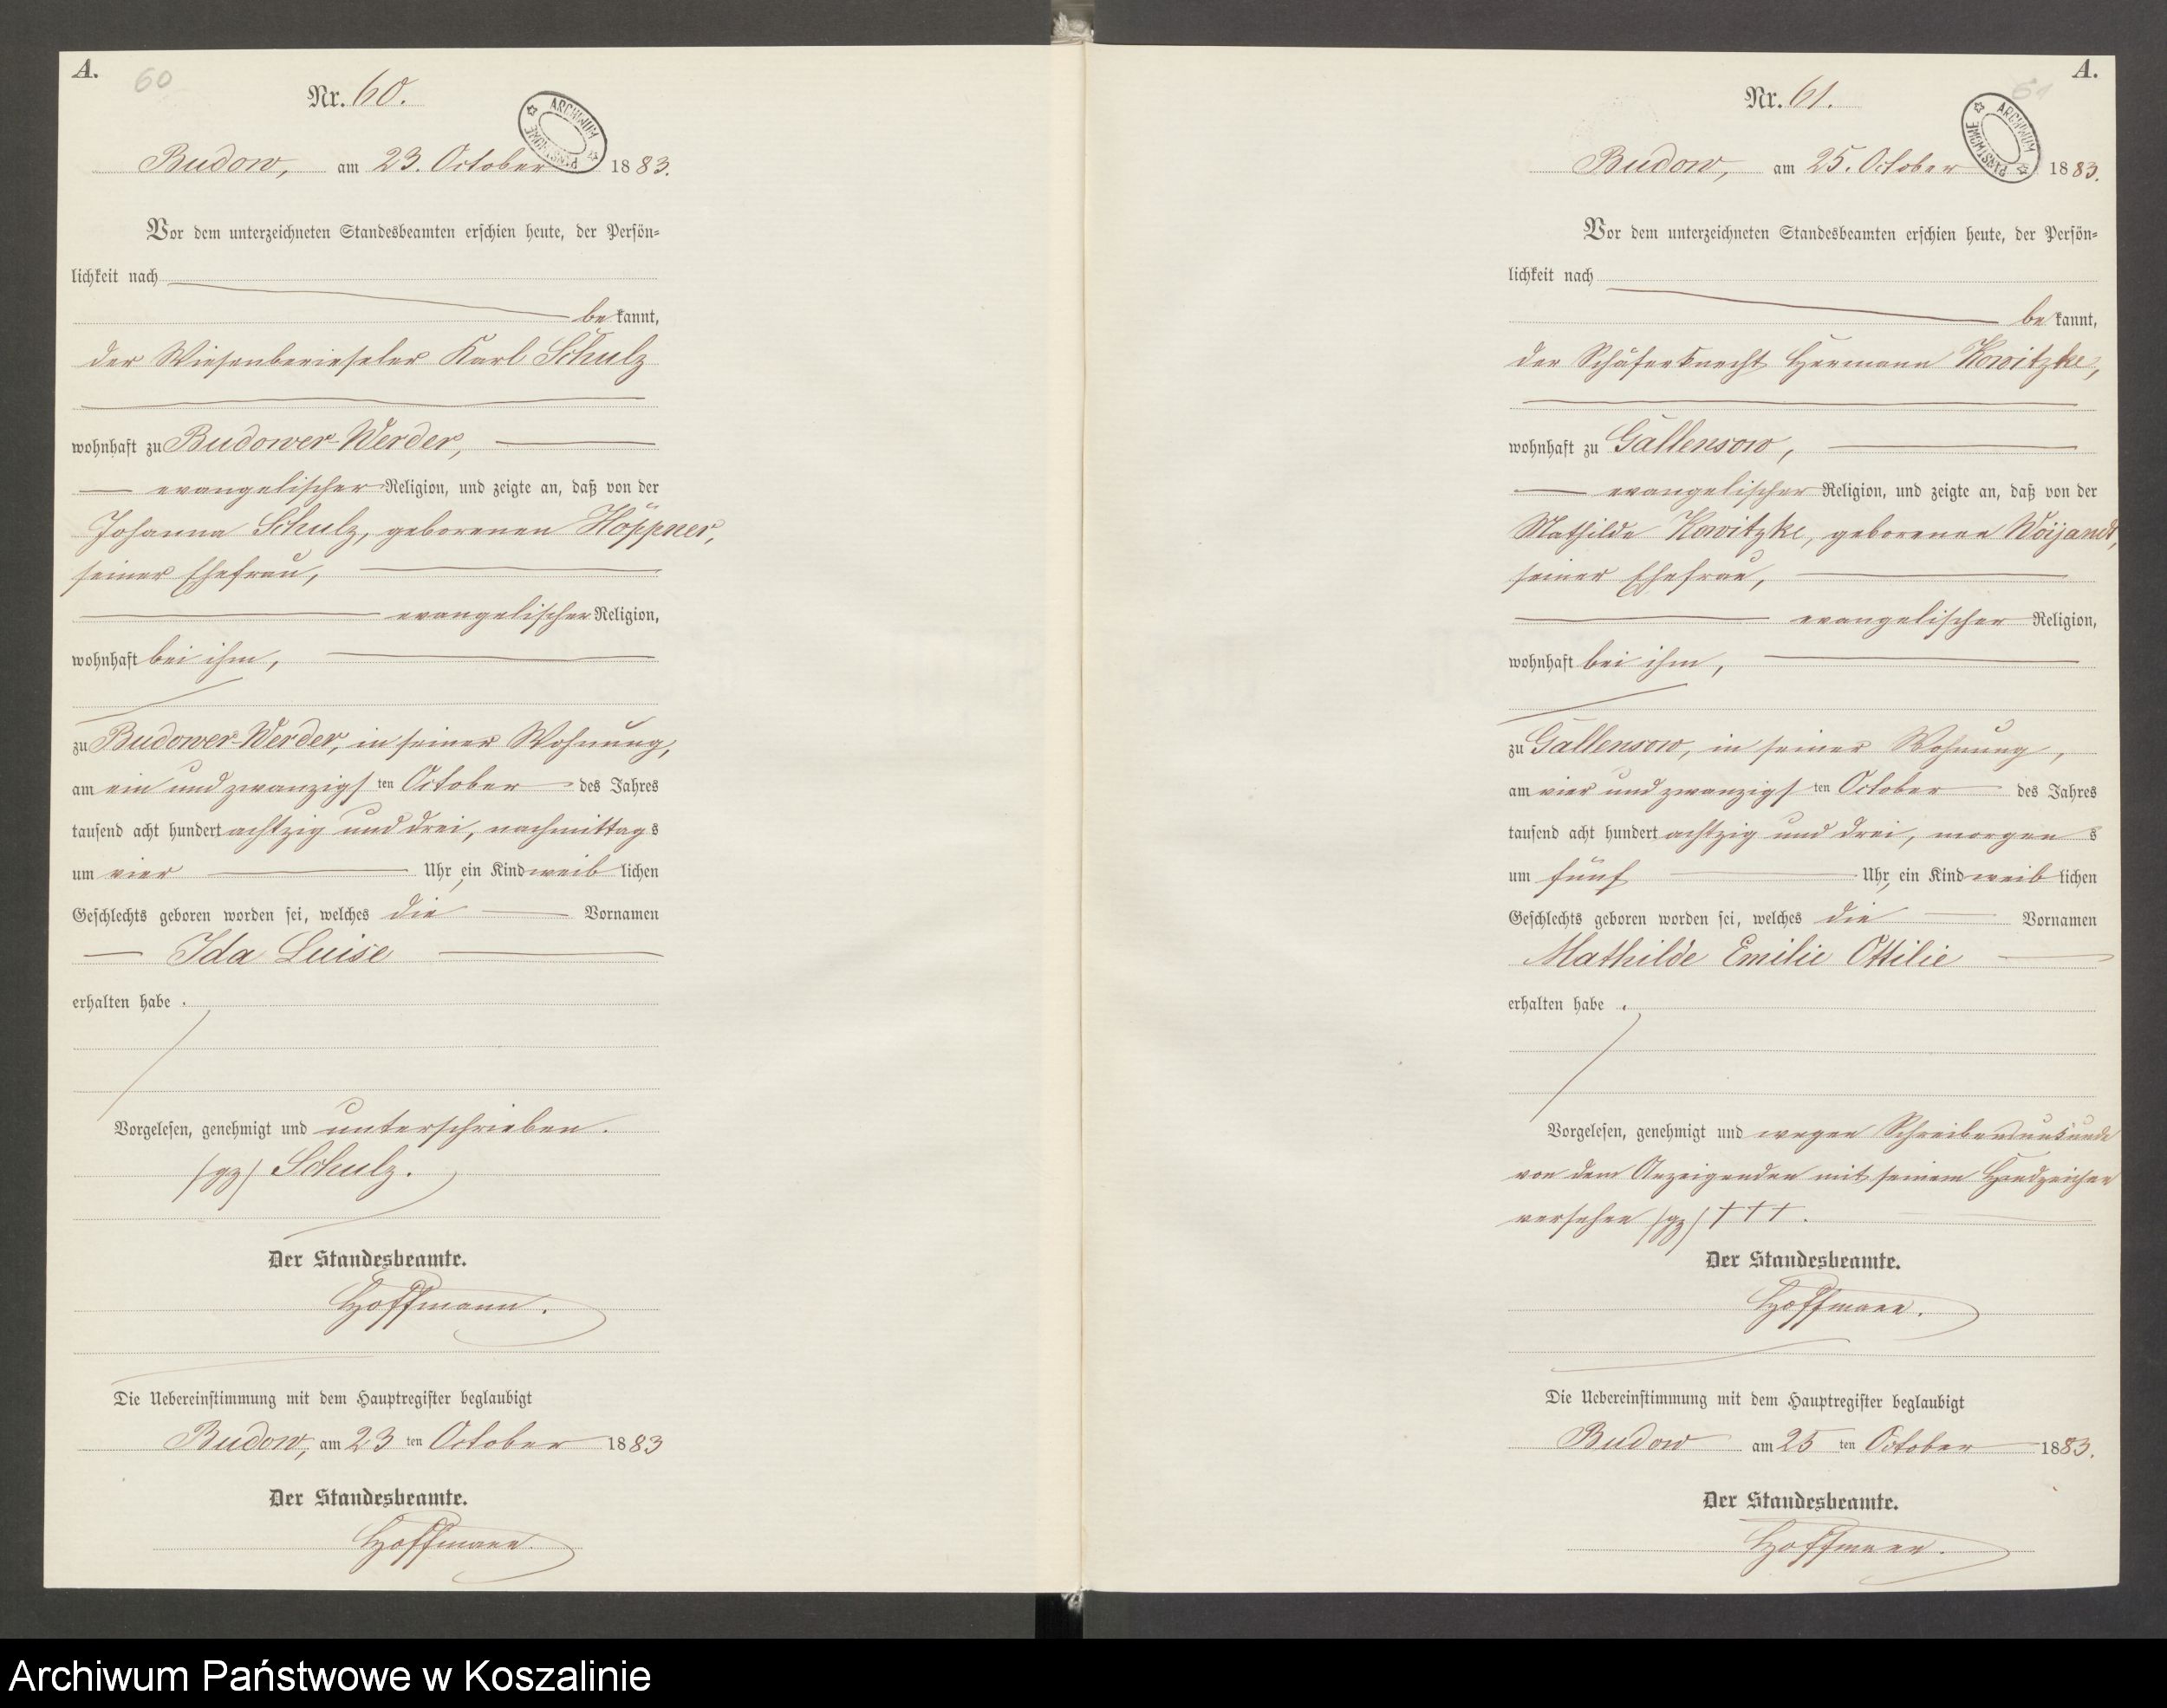 A.
60
Nr. 60.
ARCHIWUM PAŃSTWOWE
Budow, am 23. October 1883.
Vor dem unterzeichneten Standesbeamten erschien heute, der Persön-
lichkeit nach
bekannt,
der Wiesenberieseler Karl Schulz
wohnhaft zu Budower-Werder,
evangelischer Religion, und zeigte an, daß von der
Johanna Schulz, geborenen Höppner,
seiner Ehefrau,
evangelischer Religion,
wohnhaft bei ihm,
zu Budower-Werder, in seiner Wohnung,
am ein und zwanzigsten October des Jahres
tausend acht hundert achtzig und drei, nachmittags
um vier Uhr, ein Kind weiblichen
Geschlechts geboren worden sei, welches die Vornamen
Ida Luise
erhalten habe.
Vorgelesen, genehmigt und unterschrieben.
(gz) Schulz.
Der Standesbeamte.
Hoffmann.
Die Uebereinstimmung mit dem Hauptregister beglaubigt
Budow, am 23ten October 1883
Der Standesbeamte.
Hoffmann.
A.
61
Nr. 61.
ARCHIWUM PAŃSTWOWE
Budow, am 25. October 1883.
Vor dem unterzeichneten Standesbeamten erschien heute, der Persön-
lichkeit nach
bekannt,
der Schäferknecht Hermann Kowitzke,
wohnhaft zu Gallensow,
evangelischer Religion, und zeigte an, daß von der
Mathilde Kowitzke, geborenen Woijandt,
seiner Ehefrau,
evangelischer Religion,
wohnhaft bei ihm,
zu Gallensow, in seiner Wohnung,
am vier und zwanzigsten October des Jahres
tausend acht hundert achtzig und drei, morgens
um fünf Uhr, ein Kind weiblichen
Geschlechts geboren worden sei, welches die Vornamen
Mathilde Emilie Ottilie
erhalten habe.
Vorgelesen, genehmigt und wegen Schreibensunkunde
von dem Anzeigenden mit seinem Handzeichen
versehen (gz) + + + .
Der Standesbeamte.
Hoffmann.
Die Uebereinstimmung mit dem Hauptregister beglaubigt
Budow am 25ten October 1883.
Der Standesbeamte.
Hoffmann.
Archiwum Państwowe w Koszalinie